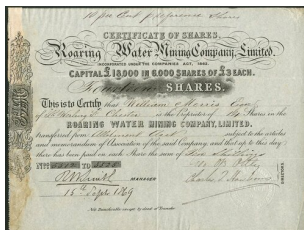 10 per Cent Preference Shares
CERTIFICATE OF SHARES.
Roaring Water Mining Company, Limited.
INCORPORATED UNDER THE COMPANIES ACT, 1862.
CAPITAL £18,000 IN 6,000 SHARES OF £3 EACH.
SHARES.
This is to Certify that William Morris Esq
of Chester is the Proprietor of Shares in the
ROARING WATER MINING COMPANY, LIMITED.
transferred from subject to the articles
and memorandum of Association of the said Company, and that up to this day
there has been paid on each Share the sum of
No TO
MANAGER
15th Sept 1869
Not Transferable except by deed of Transfer.